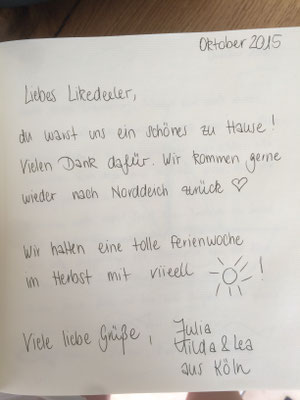 Oktober 2015
Liebes Likedeeler,
du warst uns ein schönes zu Hause!
Vielen Dank dafür. Wir kommen gerne
wieder nach Norddeich zurück ♡
Wir hatten eine tolle Ferienwoche
im Herbst mit viieell ☀!
Viele liebe Grüße, Julia
Hilda & Lea
aus Köln